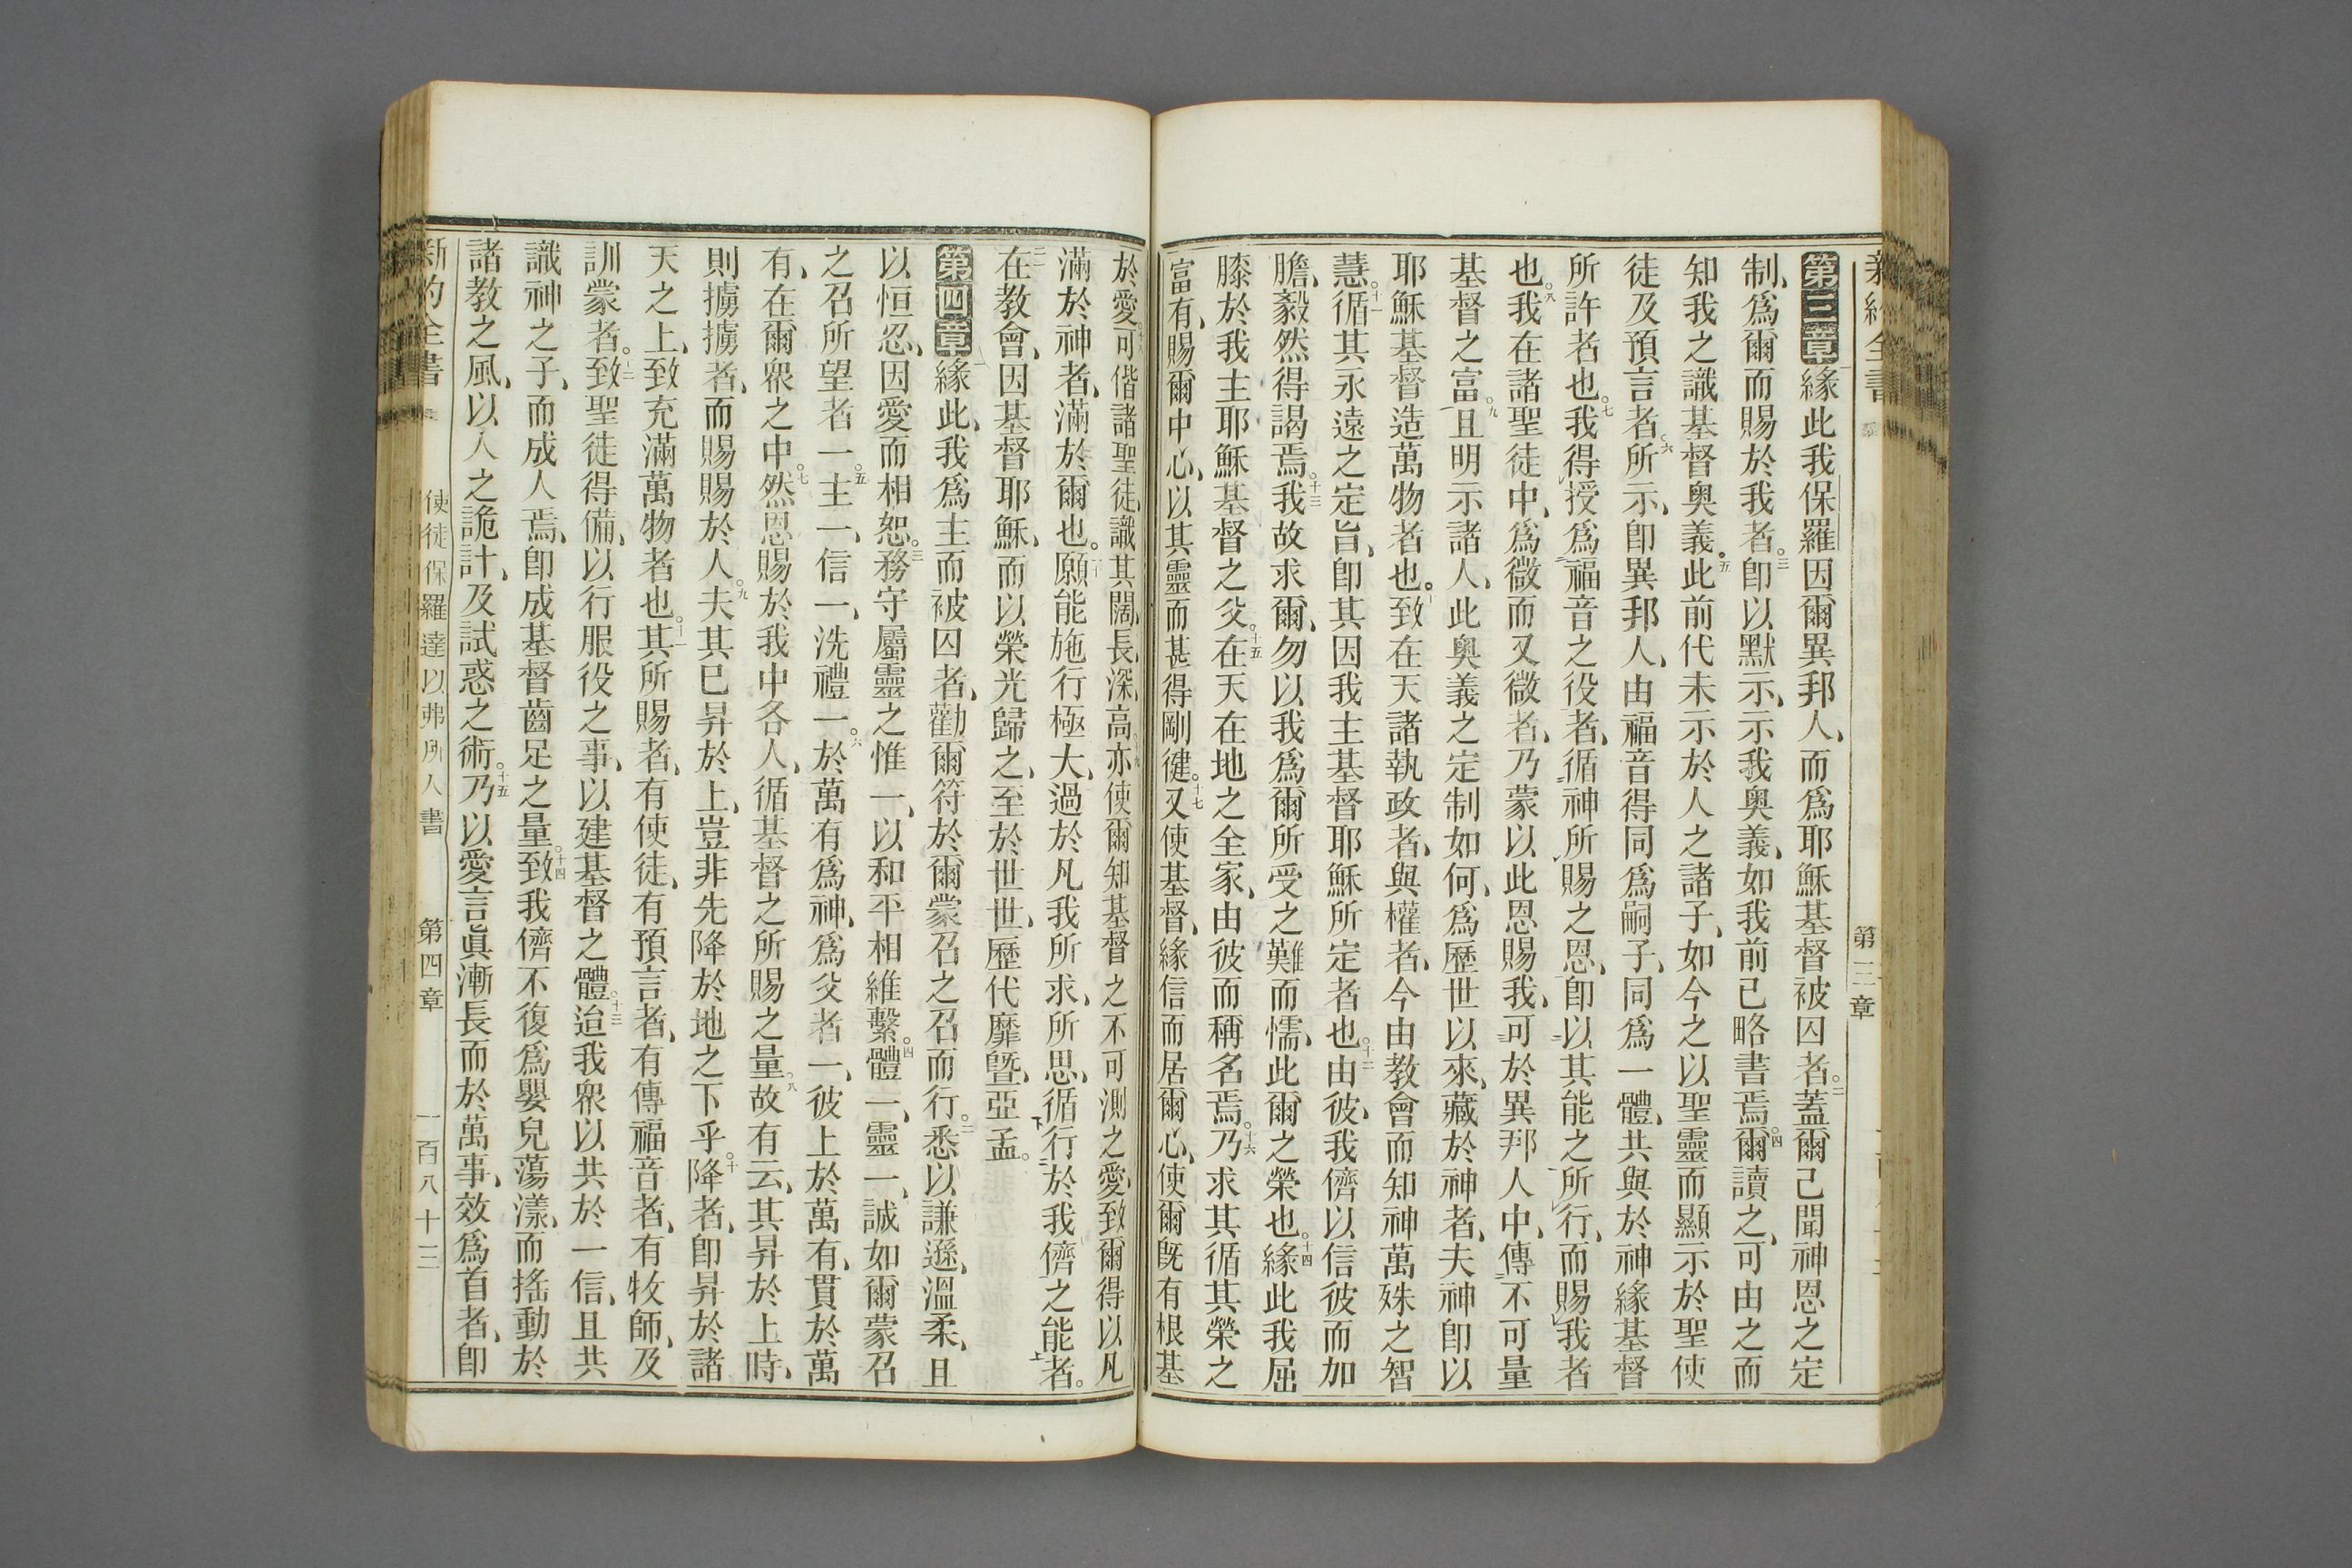 第三章緣此我保羅因爾異邦人、而爲耶穌基督被囚者。二蓋爾己聞神恩之定
制、爲爾而賜於我者。三卽以默示、示我奥義、如我前己略書焉。四爾讀之、可由之而
知我之識基督奥義。五此前代未示於人之諸子、如今之以聖靈而顯示於聖使
徒及預言者所示。六卽異邦人、由福音得同爲嗣子、同爲一體、共與於神緣基督
所許者也。七我得授爲福音之役者、循神所賜之恩、卽以其能之所行、而賜我者
也。八我在諸聖徒中、爲微而又微者、乃蒙以此恩賜我、可於異邦人中、傳不可量
基督之富。九且明示諸人、此奥義之定制如何、爲歷世以來、藏於神者、夫神卽以
耶穌基督造萬物者也。十致在天諸執政者、與權者、今由教會而知神萬殊之智
慧。十一循其永遠之定旨、卽其因我主基督耶穌所定者也。十二由彼、我儕以信彼而加
膽、毅然得謁焉。十三我故求爾、勿以我爲爾所受之難而懦、此爾之榮也。十四緣此我屈
膝於我主耶穌基督之父。十五在天在地之全家、由彼而稱名焉。十六乃求其循其榮之
富有、賜爾中心、以其靈而甚得剛健。十七又使基督、緣信而居爾心、使爾旣有根基
於愛、可偕諸聖徒、識其闊、長、深、高。十九亦使爾知基督之不可測之愛、致爾得以凡
滿於神者、滿於爾也。二十願能施行極大、過於凡我所求、所思、循行於我儕之能者。
二一在教會、因基督耶穌、而以榮光歸之、至於世世、歷代靡曁、亞孟。
第四章一緣此、我爲主而被囚者、勸爾符於爾蒙召之召而行。二悉以謙遜、溫柔、且
以恒忍、因愛而相恕。三務守屬靈之惟一、以和平相維繫。四體一、靈一、誠如爾蒙召
之召所望者一。五主一、信一、洗禮一。六於萬有爲神、爲父者一、彼上於萬有、貫於萬
有、在爾眾之中。七然恩賜於我中各人、循基督之所賜之量。八故有云、其昇於上時、
則擄擄者、而賜賜於人。九夫其已昇於上、豈非先降於地之下乎。十降者、卽昇於諸
天之上、致充滿萬物者也。十一其所賜者、有使徒、有預言者、有傳福音者、有牧師、及
訓蒙者。十二致聖徒得備、以行服役之事、以建基督之體。十三迨我眾以共於一信、且共
識神之子、而成人焉、卽成基督齒足之量。十四致我儕不復爲嬰兒蕩漾、而搖動於
諸教之風、以人之詭計、及試惑之術。十五乃以愛言眞漸長而於萬事、效爲首者、卽
新約全書 使徒保羅達以弗所人書 第四章 一百八十三